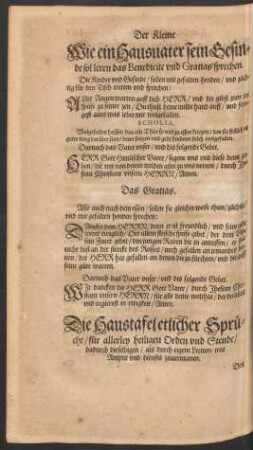 Der Kleine
Wie ein Hausvater sein Gesin-
de sol leren das Benedicite vnd Gratias sprechen.
Die Kinder vnd Gesinde / sollen mit gefalten henden / vnd züch-
tig für den Tisch treten vnd sprechen:
Aller Augen warten auff dich HERR / vnd du gibst jnen jre
Speise zu seiner zeit / Du thust deine milde hand auff / vnd
alles was lebet mit wolgefallen.
SCHOLIA.
Wolgefallen heisset / das alle Thier so viel zu essen kriegen / das sie frölich vnd
guter ding darüber sind / Denn sorgen vnd geitz hindern solch wolgefallen.
Darnach das Vater vnser / vnd dis folgende Gebet.
HERR Gott Himlischer Vater / segene vns vnd diese deine
Jhesum Christum vnsern HERRN / Amen.
Das Gratias.
Also auch nach dem essen / sollen sie gleicher weise thun / züchtig
vnd mit gefalten henden sprechen:
Dancket dem HERRN / denn er ist freundlich / vnd seine güte
weret ewiglich / Der allem fleische speise gibet / der dem Vieh
sein futer gibet / den jungen Raben die jn anruffen / er hat
nicht lust an der stercke des Rosses / noch gefallen an jemandes bei-
nen / der HERR hat gefallen an denen die jn fürchten / vnd die auff
seine güte warten.
Darnach das Vater vnser / vnd dis folgende Gebet.
Wir dancken dir HERR Gott Vater / durch Jhesum Chri-
stum vnsern HERRN / für alle deine wolthat / der du lebest
vnd regierest in ewigkeit / Amen.
Die Haustafel etlicher Sprü-
che / für allerley heiligen Orden vnd Stende /
dadurch dieselbigen / als durch eigene Lection / jres
Ampts vnd diensts zuuermanen.